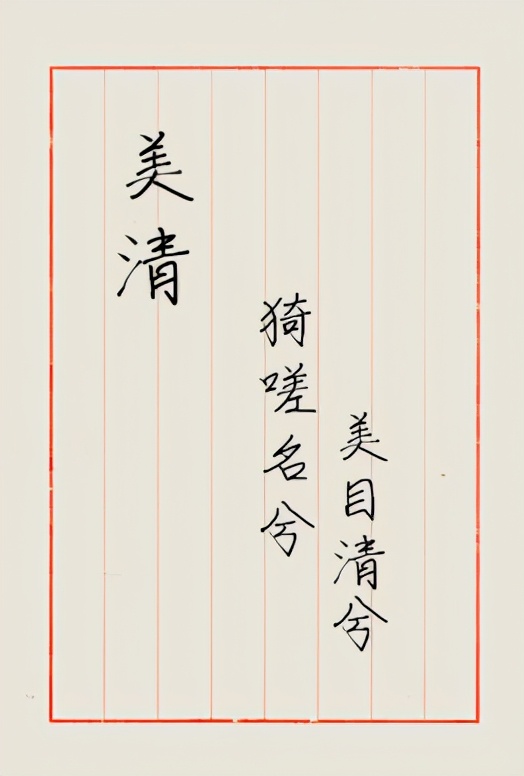 美清
猗嗟名兮
美目清兮